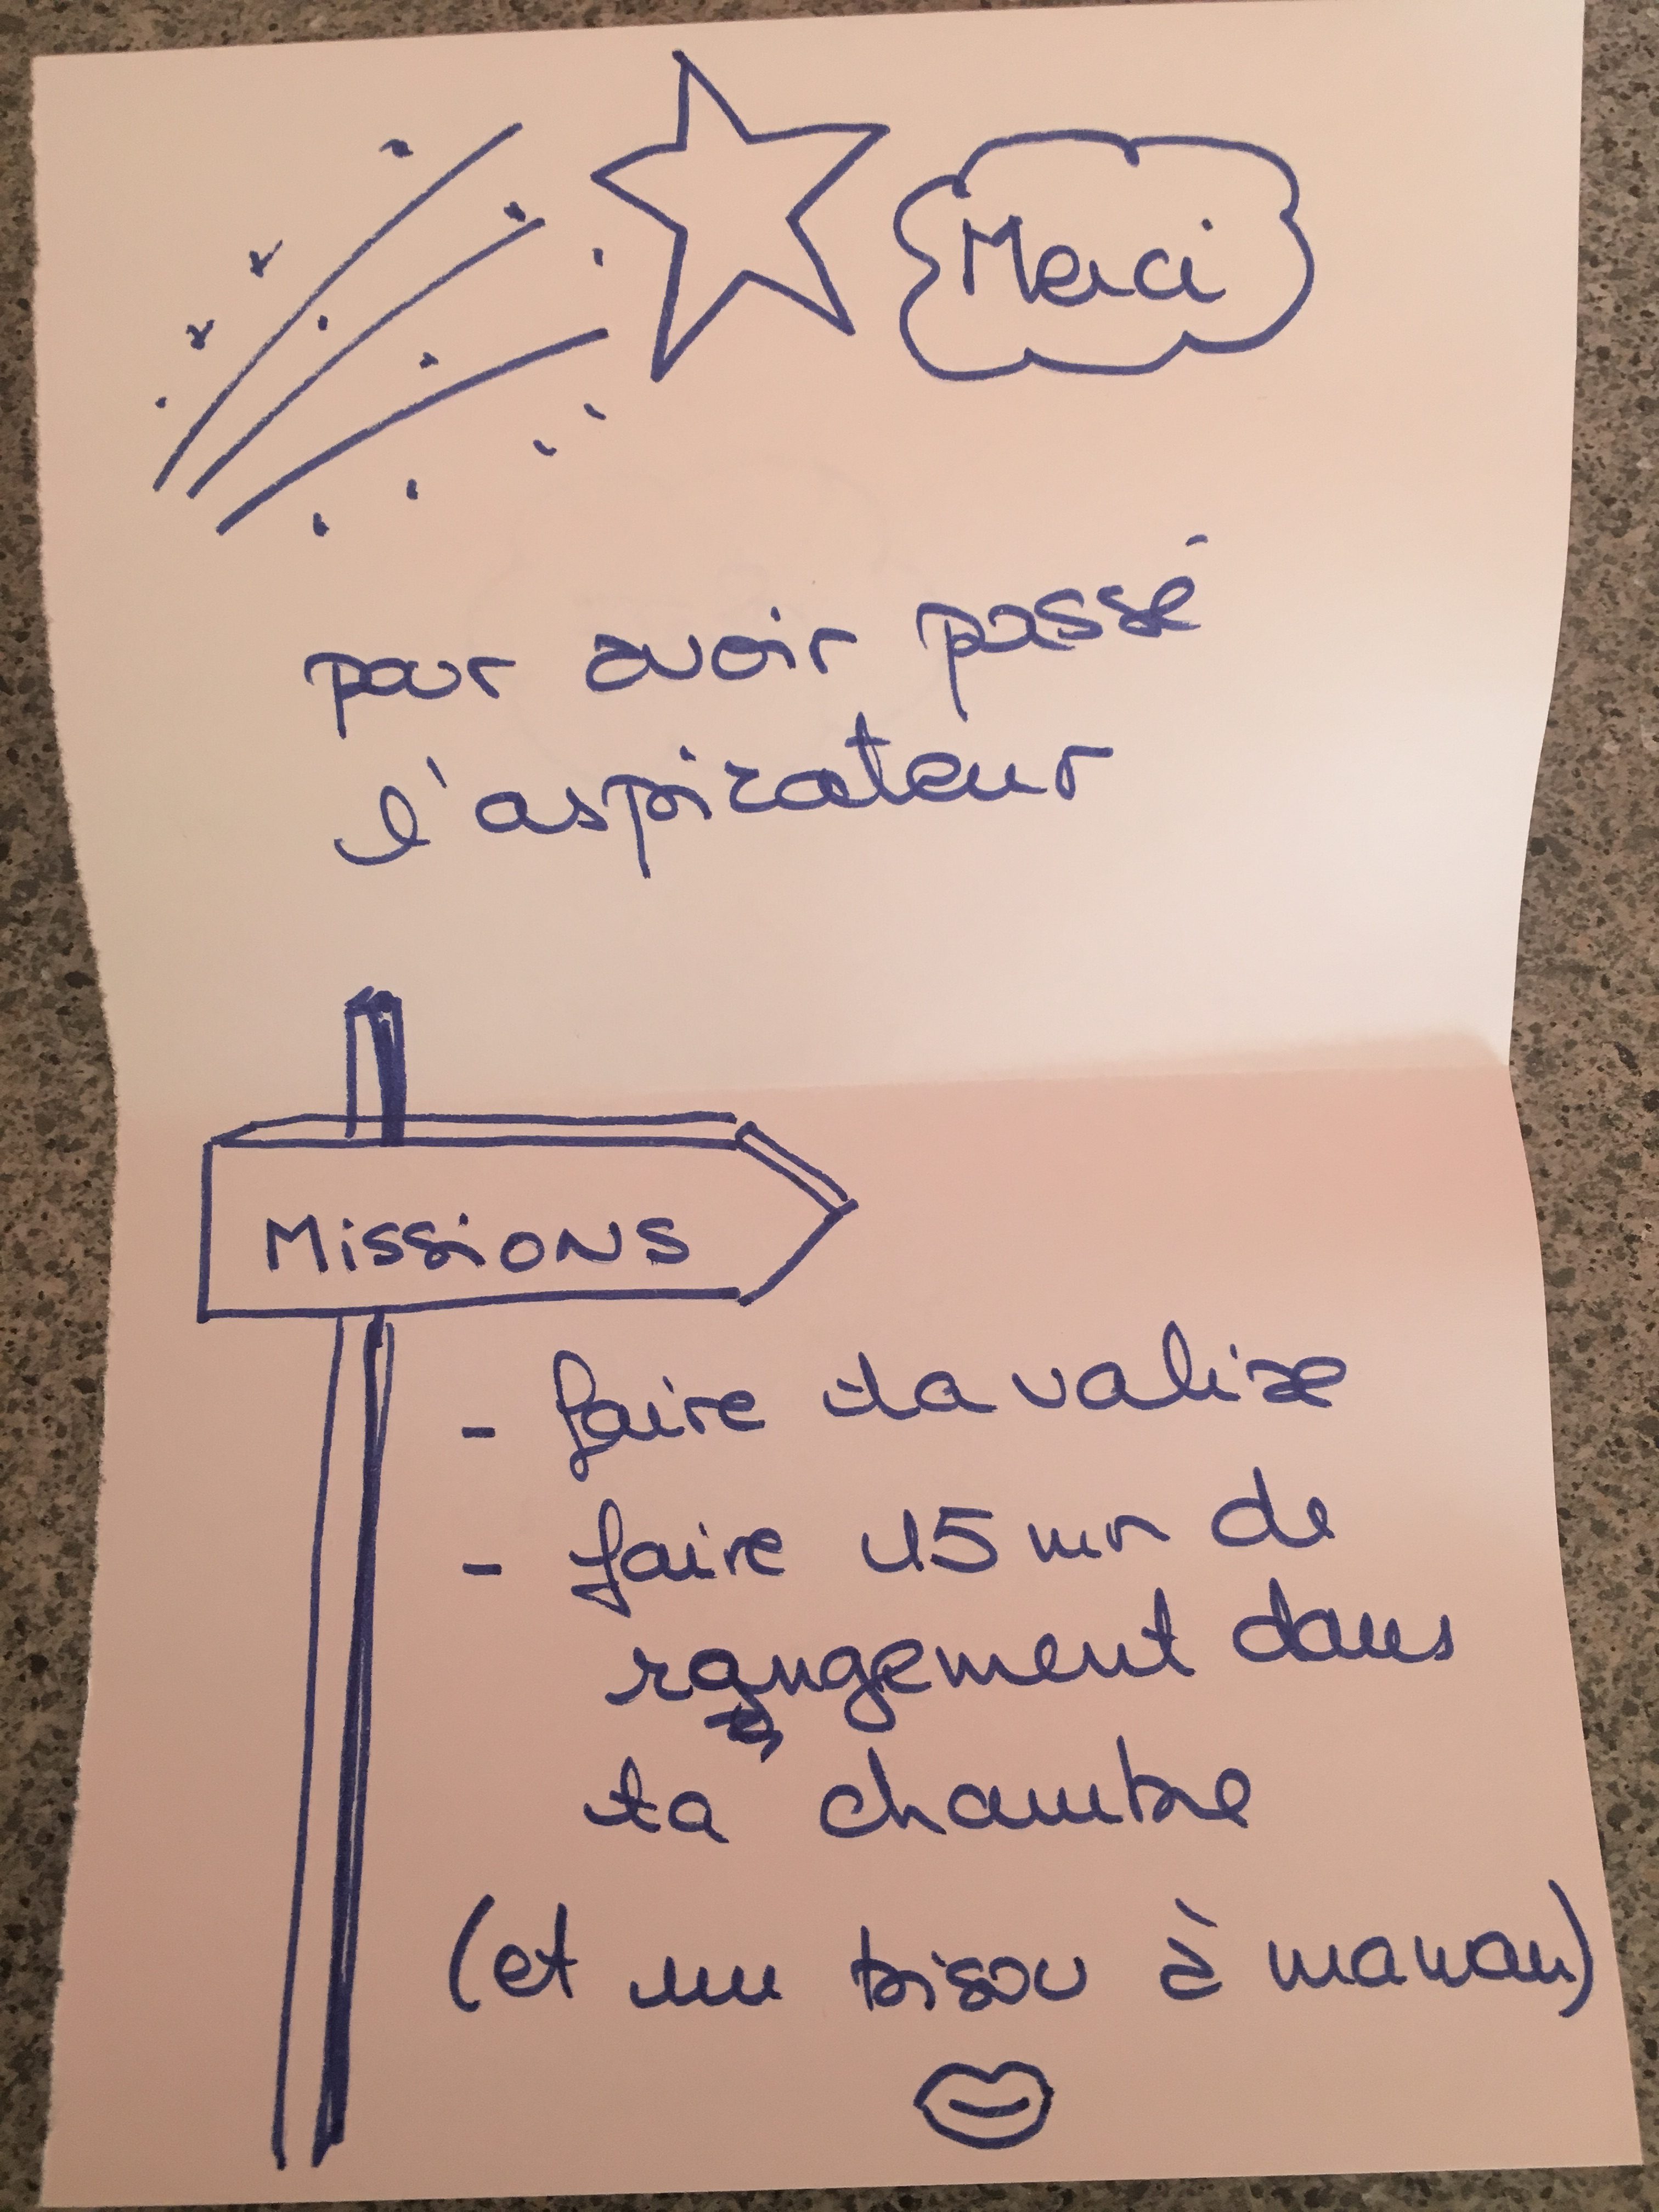 Merci
pour avoir passé
l'aspirateur
Missions
- faire ta valise
- faire 15 mn de
rangement dans
ta chambre
(et un bisou à maman)